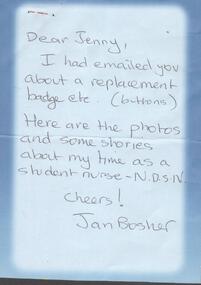 Dear Jenny,
I had emailed you
about a replacement
badge etc. (buttons)
Here are the photos
and some stories
about my time as a
student nurse - N.D.S.N.
Cheers!
Jan Bosher